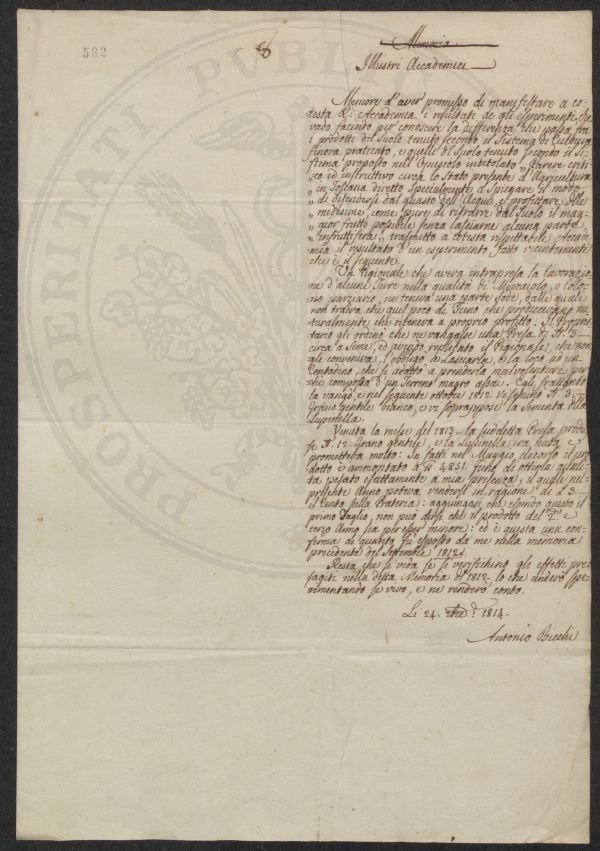 582
8
Memoria
Illustri Accademici
Memore d'aver promesso di manifestare a co-
testa R. Accademia i resultati degli esperimenti, che
vado facendo per conoscere la differenza che passa fra
i prodotti del Suolo tenuto secondo il Sistema di Cultura
finora praticato, e quelli del Suolo tenuto secondo il Si-
stema proposto nell'Opuscolo intitolato "Parere criti-
"co ed instruttivo circa lo Stato presente d'Agricoltura
"in Toscana diretto specialmente a Spiegare il modo
"di difendersi dal guasto dell'Acque, e profittare delle
"medesime, come pure di ritrarre dal Suolo il mag-
"gior frutto possibile senza lasciarne alcuna parte
"infruttifera" trasmetto a cotesta rispettabile Accade-
mia il resultato d'un esperimento fatto recentemente
che è il seguente.
Un Pigionale che aveva intrapresa la lavorazio-
ne d'alcune Terre nella qualità di Mezzaiolo, o Colo-
no parziario, ne teneva una parte Sode, dalle quali
non traeva che quel poco di Fieno che producevano na-
turalmente che riteneva a proprio profitto. Il Proprie-
tario gli ordinò che ne vangasse una Presa di St. 2
circa a Seme, ed avendo replicato il Pigionale, che non
gli conveniva, l'obbligò a Lasciarla, e la locò ad un
Contadino, che si adattò a prenderla malvolentieri per-
che composta d'un Terreno magro assai. Egli frattanto
la vangò, e nel seguente ottobre 1812 vi seminò St. 3
Grano Gentile bianco, e vi soprappose la Sementa della
Lupinella.
Venuta la messe del 1813 la suddetta Presa produs-
se St. 12. Grano gentile, e la Lupinella era nata e
prometteva molto: In fatti nel Maggio decorso il pro-
dotto è ammontato a lb 4851 fieno di ottima quali-
tà pesato esattamente a mia presenza, il quale nel
presente Anno poteva vendersi in ragione di £ 3
il Cento sulla Prateria: aggiungasi che essendo questo il
primo Taglio, non può dirsi che il prodotto del 2º e
terzo Anno sia per esser minore: ed è questa una con-
ferma di quanto fu esposto da me nella memoria
precedente del Settembre 1812.
Resta che si veda se si verifichino gli effetti pre-
sagiti nella detta Memoria del 1812. lo che anderò spe-
rimentando se vivo, e ne renderò conto.
Li 24. 1814.
Antonio Bicchi